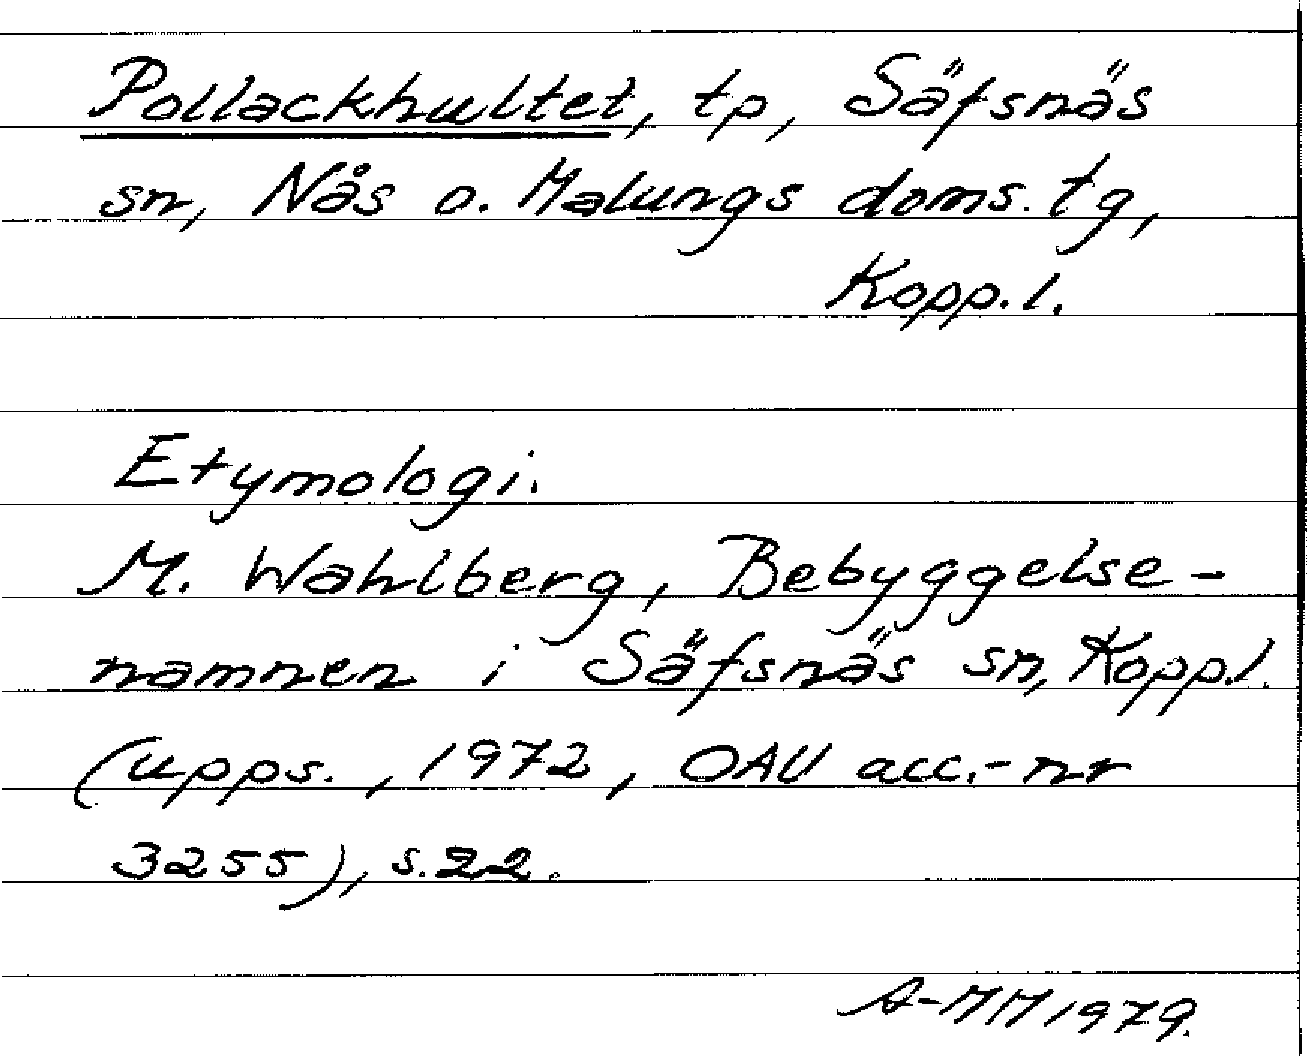 Pollackhultet, tp, Säfsnäs
sn, Nås o. Malungs doms. tg,
Kopp. l.
Etymologi.
M. Wahlberg, Bebyggelse-
namnen i Säfsnäs sn, Kopp.l.
(Upps., 1972, OAU acc.-nr
3255), s.22.
A-MM 1979.